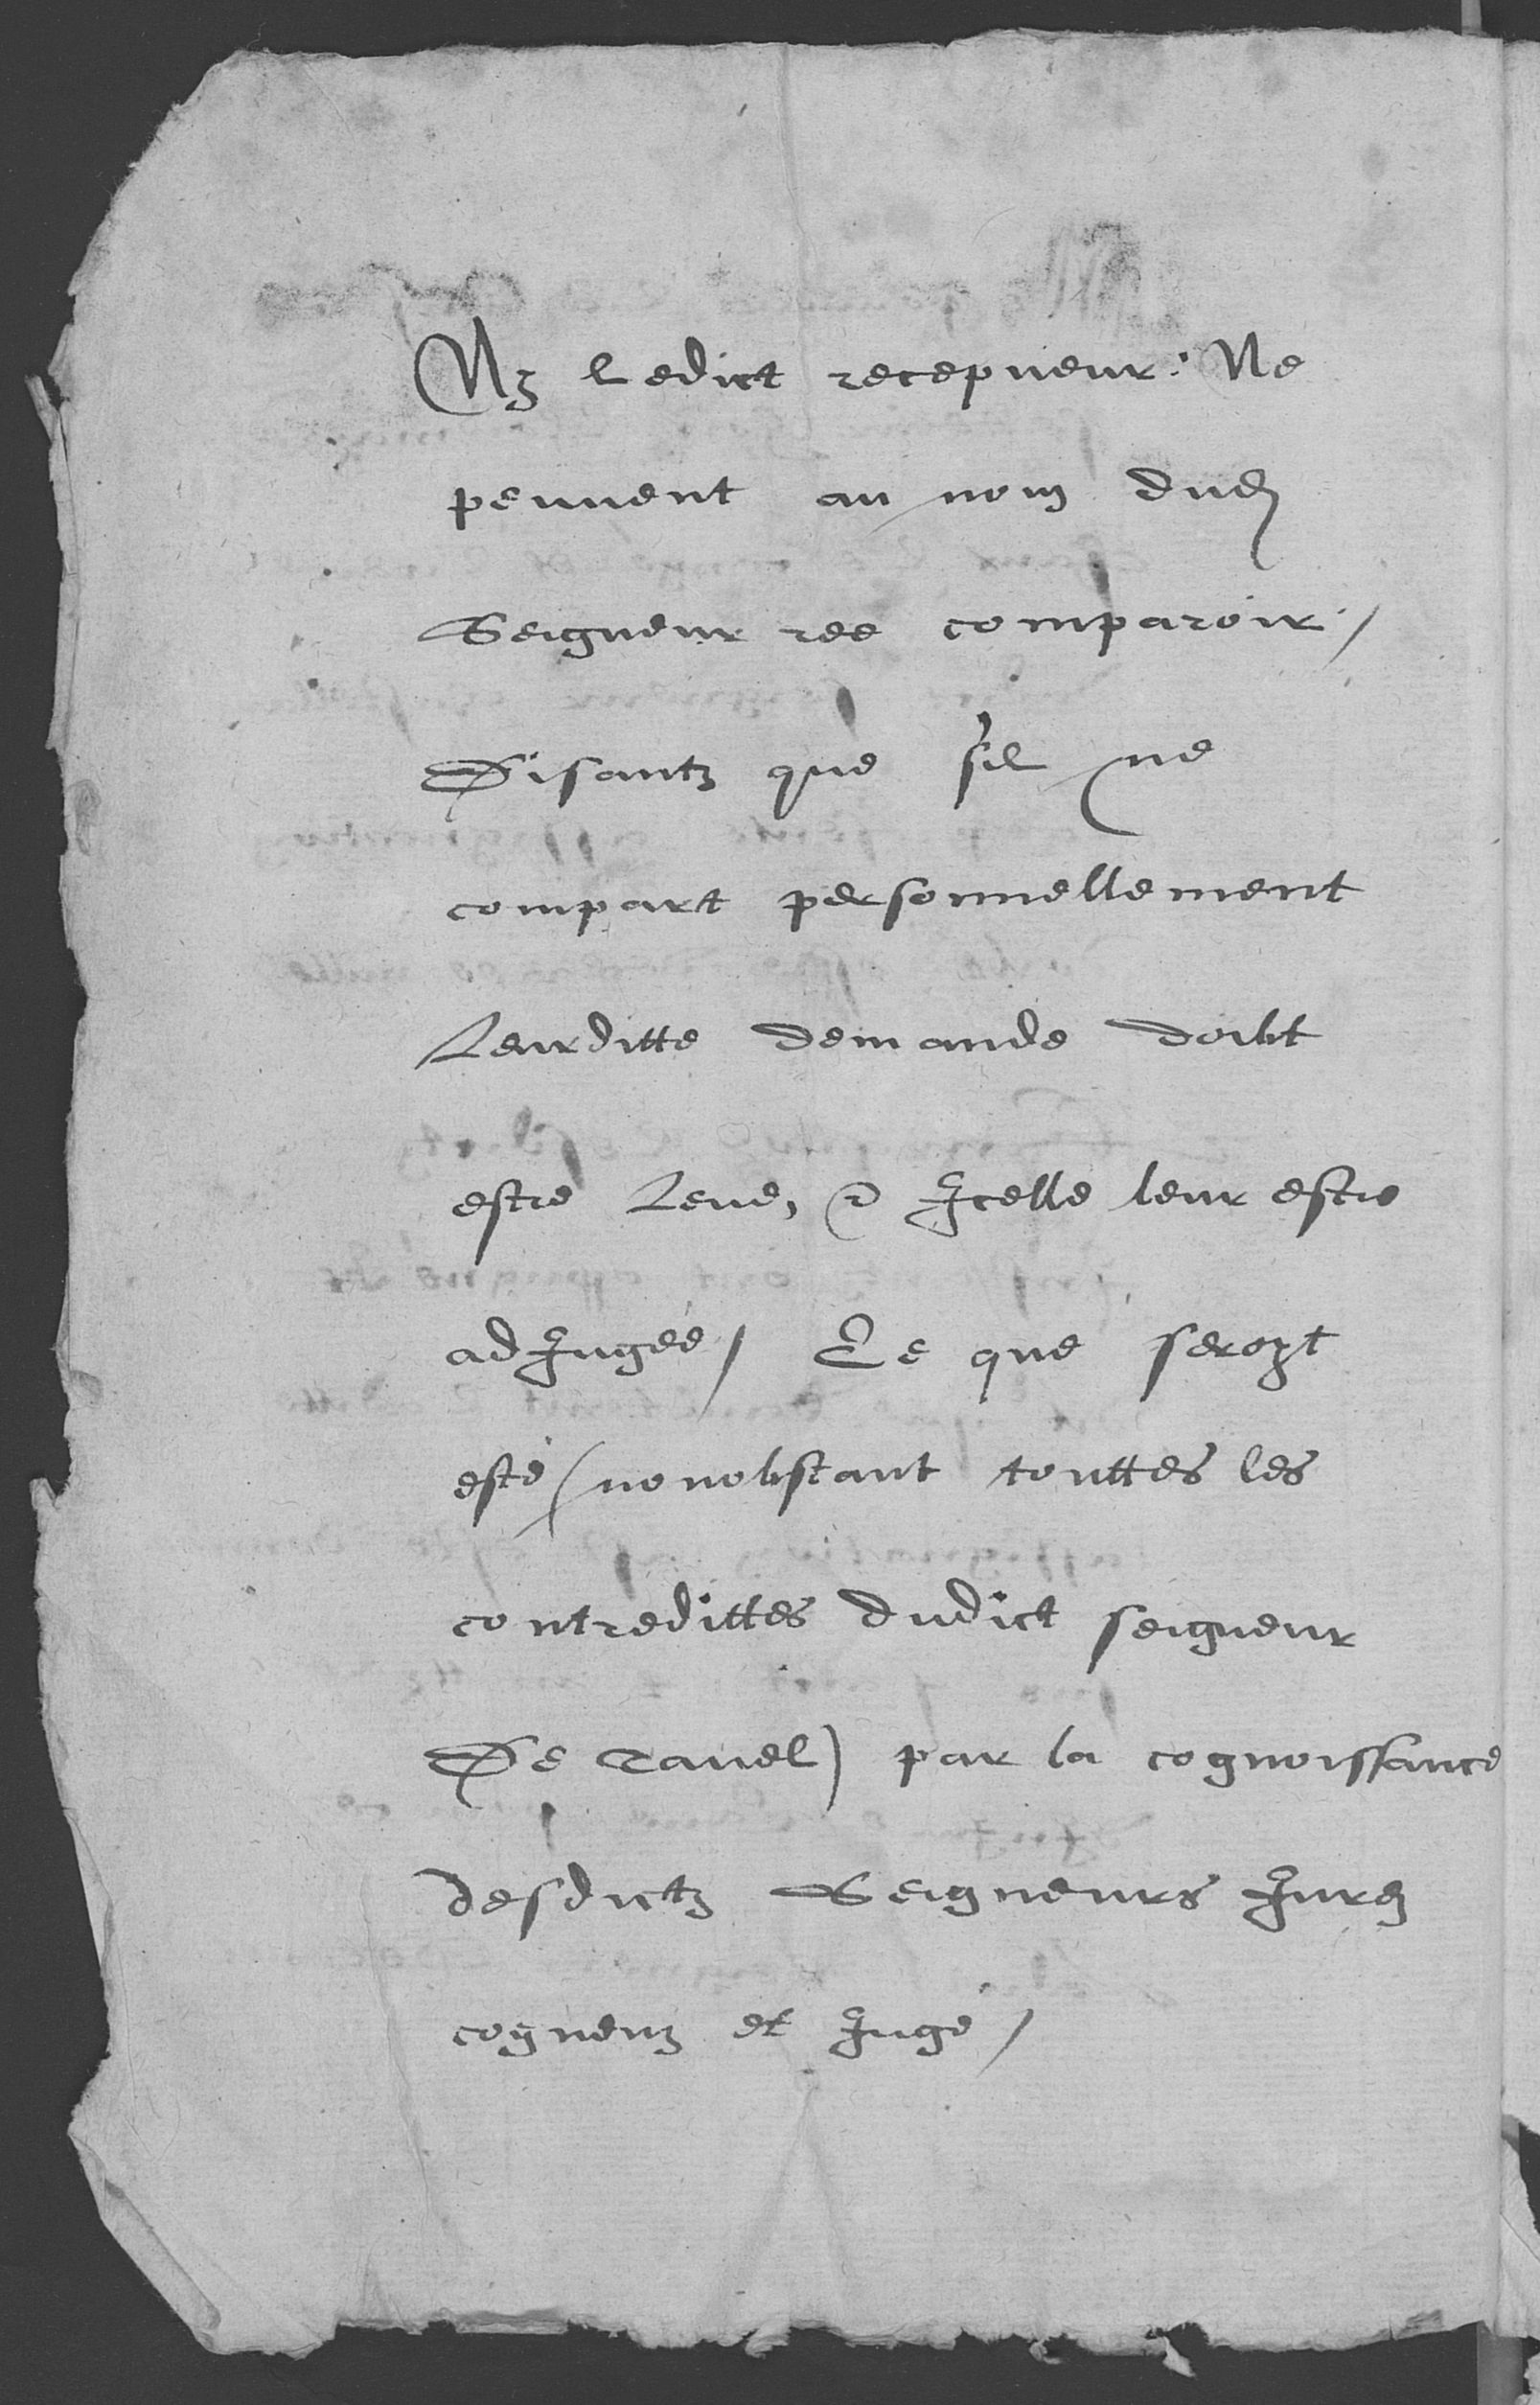 Ny ledict recepueur: Ne
peuuent au nom dud
Seigneur ree comparoir /
Disantz que s'il ne
compart personnellement
Leurditte demande doibt
estre Leue, & Icelle leur estre
adJugée / Ce que seroyt
esté (nonobstant touttes les
contredittes dudict seigneur
De Tauel) par la cognoissance
desdictz Seigneurs Jurez
cogneuz et Jugé /